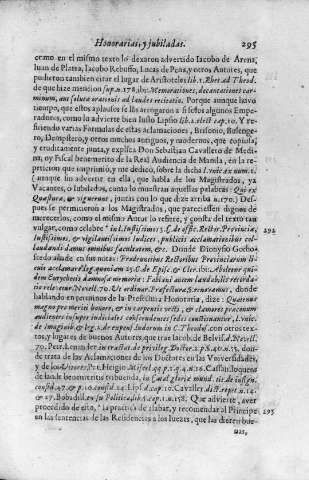 Honorarias, y jubiladas. 295
ermo en el mismo texto lo dexaron advertido Iacobo de Arena,
Iuan de Platea, Iacobo Rebuffo, Lucas de Pena, y otros Autores, que
pudieron tambien citar el lugar de Aristoteles lib. 1. Rhet. ad Theod.
de que hize mencion sup. n. 178. ibi: Memorationes, decantationes car-
minum, aut soluta orationis ad laudes recitatio. Porque aunque huvo
tiempo, que estos aplausos se les arrogaron a si solos algunos Empe-
radores, como lo advierte bien Iusto Lipsio lib. 2. elect. cap. 10. Y re-
firiendo varias Formulas de estas aclamaciones, Brisonio, Busenge-
ro, Dempstero, y otros muchos antiguos, y modernos, que copiosa,
y eruditamente junta, y explica Don Sebastian Cavallero de Medi-
na, oy Fiscal benemerito de la Real Audiencia de Manila, en la re-
peticion que imprimió, y me dedicó, sobre la dicha l. unic. ex num.
(aunque no advierte en ella, que habla de los Magistrados, ya
Vacantes, o Iubilados, como lo muestran aquellas palabras: Qui ex
Quæstura, & viguerunt, juntas con lo que dize arriba n. 170.) Des-
pues se permitieron a los Magistrados, que pareciessen dignos de
merecerlos, como el mismo Autor lo refiere, y consta del texto tan
vulgar, como celebre in l. iustissimos 3. C. de offic. Rector. Provinciæ, 292
Iustissimos, & vigilantissimos iudices, publicis acclamationibus col-
laudandi damus omnibus facultatem, &c. Donde Dionysio Gotho-
fredo añade en sus notas: Prudentibus Rectoribus Provinciarum li-
cuit acclamare
dem Eurychetis damnosa memoria: Fabiani autem laudabilis recorda-
rio relevatur. Novell. 70. Ut ordinar. Præfecturæ
hablando en terminos de la Prefectura Honoraria, dize: Quatenus
magno pro meriti honore, & in carpentis vectis, & clamores præconum
audientes in foris iudiciales consistendo sedes continuantur, l. unic.
de imaginib. & leg. 2. de expens. ludorum in C. Theodos. con otros tex-
tos, y lugares de buenos Autores, que trae Iacob. de Belvis. d. Novell.
70. Petr. Lenauder in tractat. de privileg. Doctor. 2. p. §. 40. n. 15. don-
de trata de las Aclamaciones de los Doctores en las Universidades,
y de los Vitores, Petr. Herigio Casan. loquens
de laude benemeritis tribuenda, in Catal. gloriæ mund.
Cavaller. dict. repet. n. 14.
& 27. Bobadill. en su Politica, lib. 5. cap. 1. n. 158. Que advierte, aver
procedido de esto, la practica de alabar, y recomendar al Principe 293
en las sentencias de las Residencias a los Iuezes, que las dieren bue-
nas,